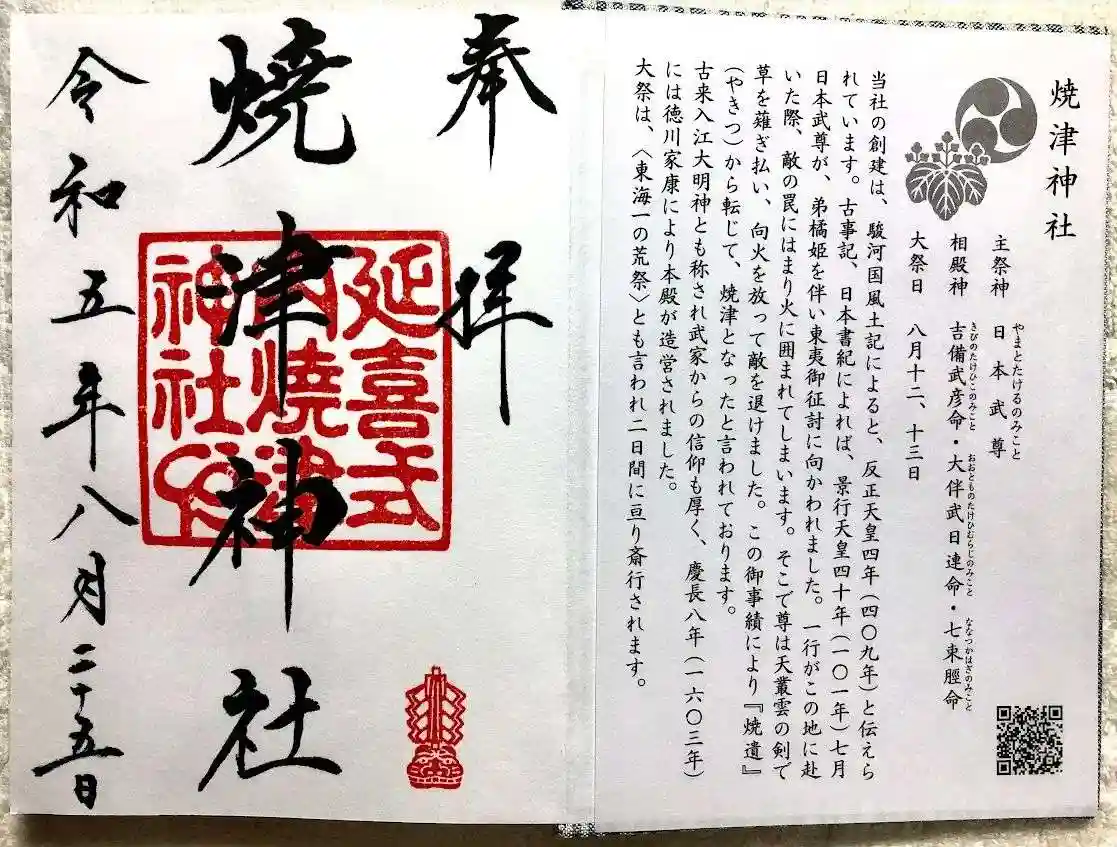 焼津神社
やまとたけるのみこと
主祭神　日本武尊
きびのたけひこのみこと　おおとものたけひむらじのみこと　ななつかはぎのみこと
相殿神　吉備武彦命・大伴武日連命・七束脛命
大祭日　八月十二、十三日
当社の創建は、駿河国風土記によると、反正天皇四年（四〇九年）と伝えら
れています。古事記、日本書紀によれば、景行天皇四十年（一〇一年）七月
日本武尊が、弟橘姫を伴い東夷御征討に向かわれました。一行がこの地に赴
いた際、敵の罠にはまり火に囲まれてしまいます。そこで尊は天叢雲の剣で
草を薙ぎ払い、向火を放って敵を退けました。この御事績により『焼遺』
（やきつ）から転じて、焼津となったと言われております。
古来入江大明神とも称され武家からの信仰も厚く、慶長八年（一六〇三年）
には徳川家康により本殿が造営されました。
大祭は、〈東海一の荒祭〉とも言われ二日間に亘り斎行されます。
奉拝
焼津神社
延喜式
内燒津
神社印
令和五年八月二十五日